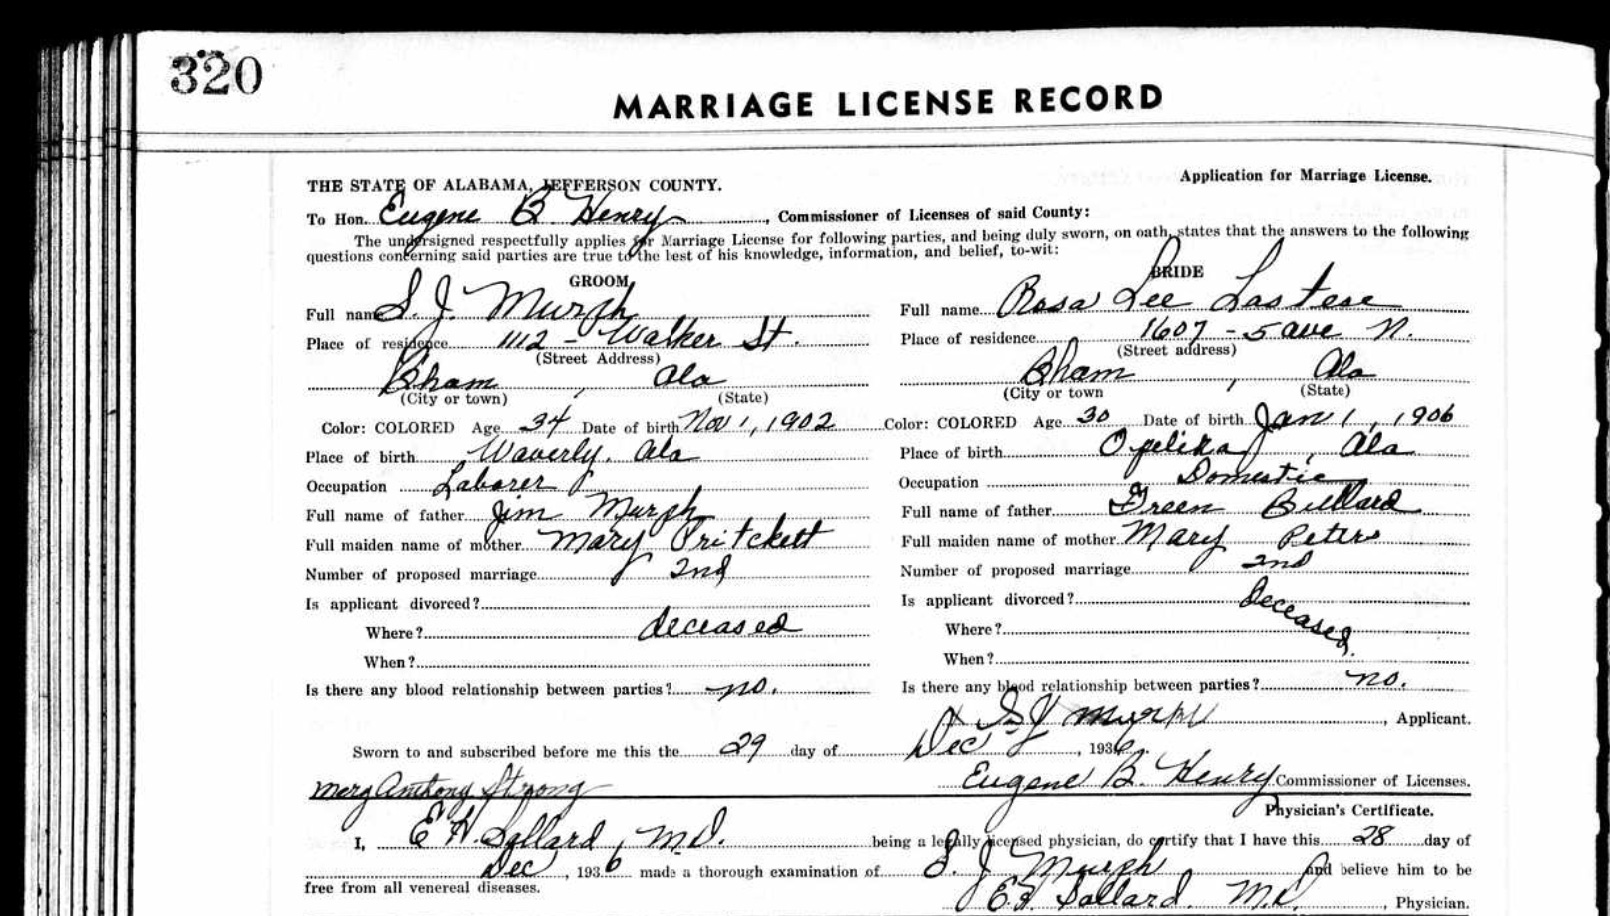 320
MARRIAGE LICENSE RECORD
Application for Marriage License.
THE STATE OF ALABAMA, JEFFERSON COUNTY.
To Hon. Eugene B. Henry, Commissioner of Licenses of said County:
The undersigned respectfully applies for Marriage License for following parties, and being duly sworn, on oath, states that the answers to the following
questions concerning said parties are true to the best of his knowledge, information, and belief, to-wit:
GROOM
Full name S. J. Murph
Place of residence 1112 - Walker St.
(Street Address)
Bham, Ala
(City or town) (State)
Color: COLORED Age 34 Date of birth Nov 1, 1902
Place of birth Waverly, Ala
Occupation Laborer
Full name of father Jim Murph
Full maiden name of mother Mary Pritchett
Number of proposed marriage 2nd
Is applicant divorced?
Where? deceased
When?
Is there any blood relationship between parties? no.
BRIDE
Full name Rosa Lee
Place of residence 1607 - 5 ave N.
(Street address)
Bham, Ala
(City or town (State)
Color: COLORED Age 30 Date of birth Jan 1, 1906
Place of birth Opelika, Ala
Occupation Domestic
Full name of father Green
Full maiden name of mother Mary Peters
Number of proposed marriage 2nd
Is applicant divorced? Deceased.
Where?
When?
Is there any blood relationship between parties? no.
S J Murph, Applicant.
Sworn to and subscribed before me this the 29 day of Dec, 1936.
Eugene B. Henry Commissioner of Licenses.
Anthony Strong
Physician's Certificate.
I, E H. Ballard, M.D. being a legally licensed physician, do certify that I have this 28 day of
Dec, 1936 made a thorough examination of S. J. Murph and believe him to be
free from all venereal diseases.
E. H. Ballard. M.D., Physician.